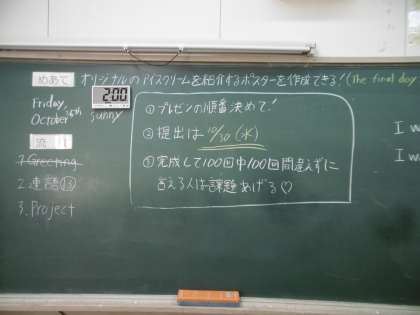 めあて オリジナルのアイスクリームを紹介するポスターを作成できる！(The final day
Friday,
October 26th
sunny
2:00
流れ
1. Greeting
2. 連語⑬
3. Project
① プレゼンの順番決めて！
② 提出は10/30(火)
③ 完成して100回中100回間違えずに
言える人は課題あげる♡
I w
I w